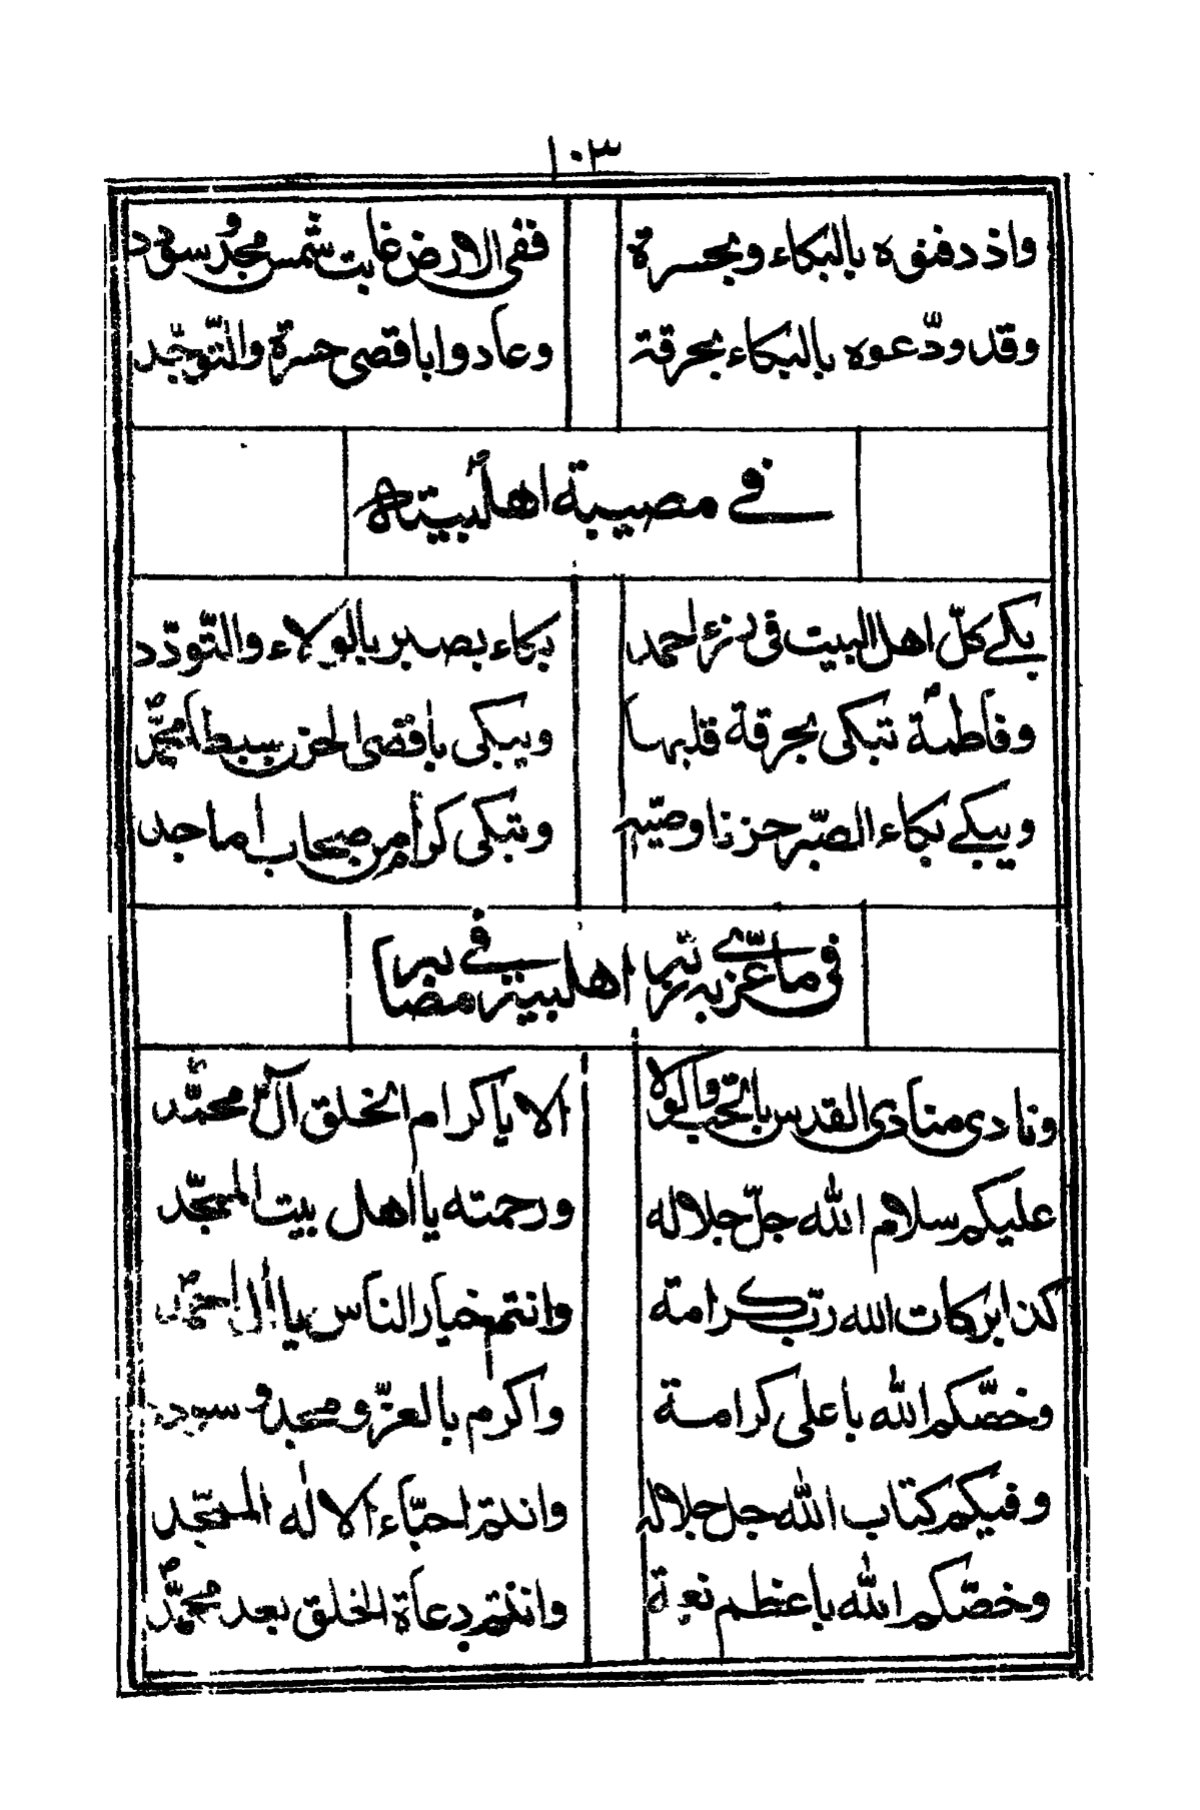 ١٠٣
واذ دفنوه بالبكاء وبحسرة ففي الارض غابت شمس مجد وسودد
وقد ودّعوه بالبكاء بحرقة وعادوا باقصى حسرة والتّوجّد
في مصيبة اهل بيته
يبكي كلّ اهل البيت في رزء احمد بكاء بصبر بالولاء والتّودّد
وفاطمة تبكى بحرقة قلبها ويبكى باقصى الحزن سبطا محمّد
ويبكي بكاء الصّبر حزنا وصيّه وتبكى كرام من صحاب اماجد
في ما عزى به ربّه اهل بيته في مصابه
ونادى منادى القدس الا يا كرام الخلق آل محمّد
عليكم سلام الله جلّ جلاله ورحمته يا اهل بيت الممجّد
كذا بركات الله ربّ كرامة وانتم خيار الناس يا آل احمد
وخصّكم الله باعلى كرامة واكرم بالعزّ ومجد وسودد
وفيكم كتاب الله جل جلاله وانتم احبّاء الاله الممجّد
وخصّكم الله باعظم نعمة وانتم دعاة الخلق بعد محمّد